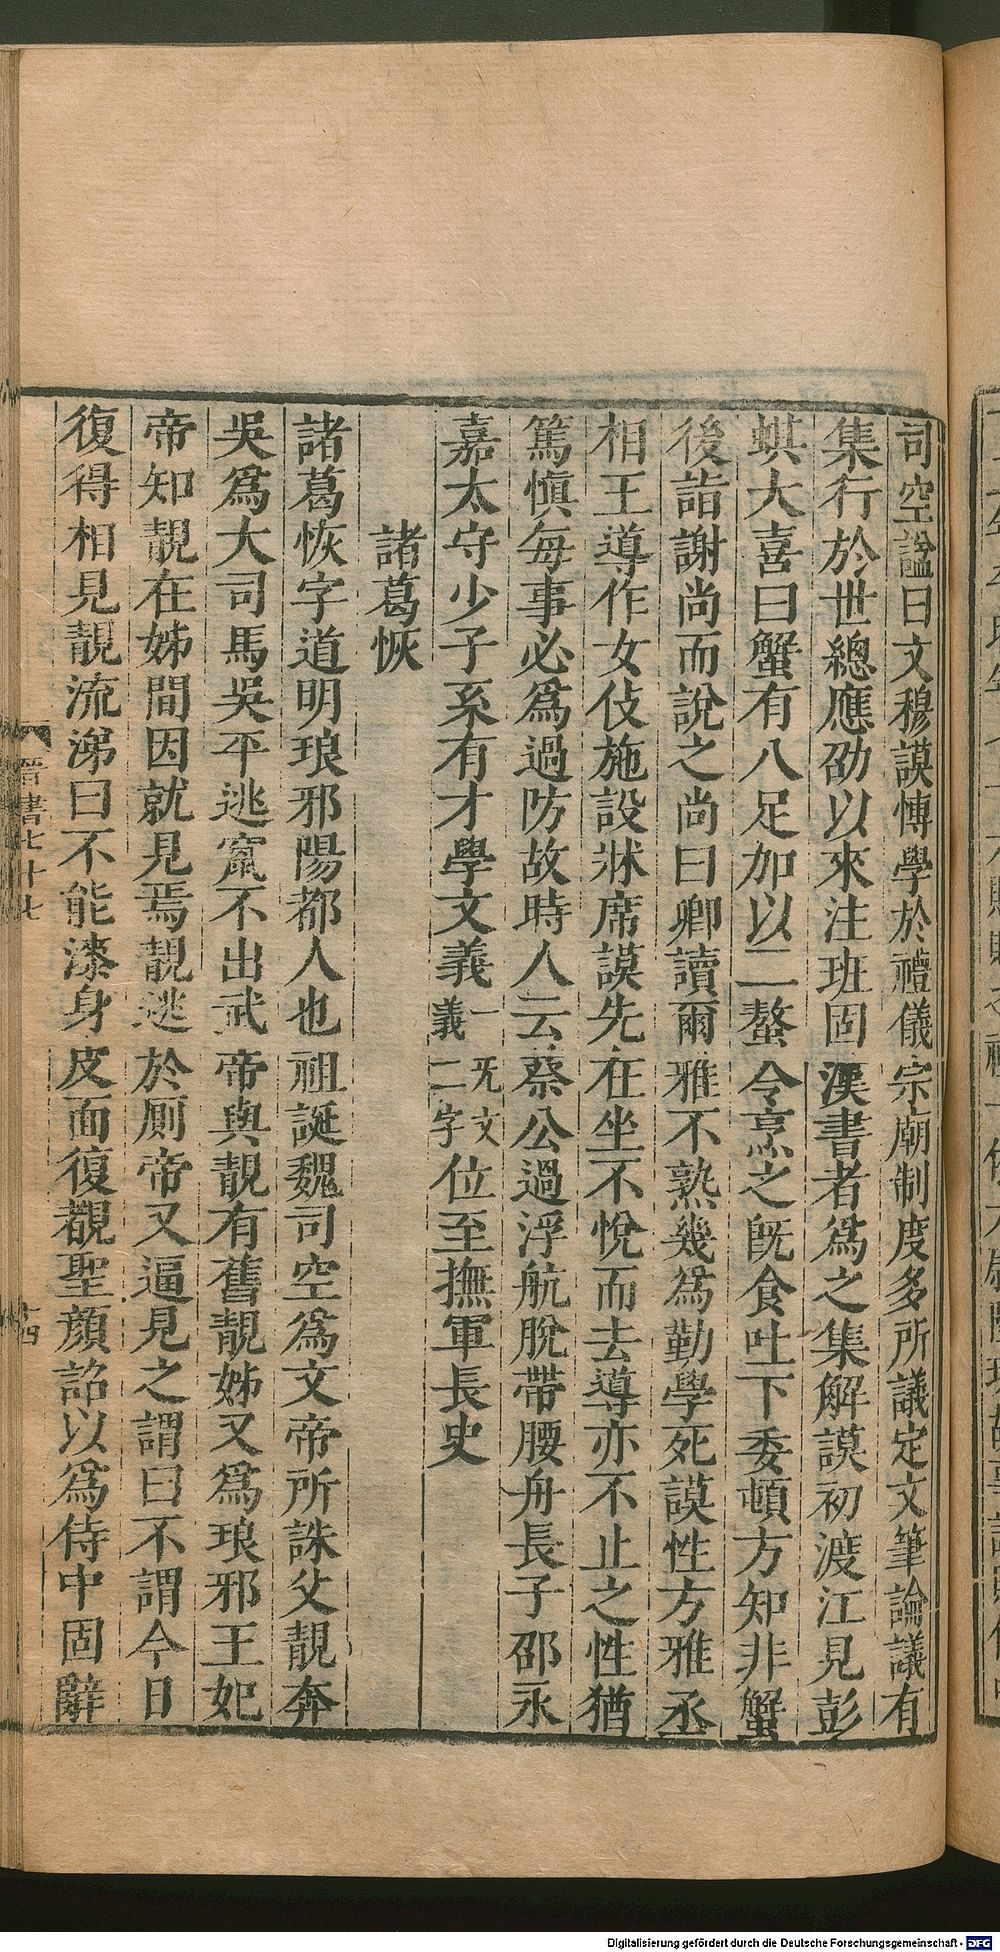 司空諡曰文穆謨博學於禮儀宗廟制度多所議定文筆論議有
集行於世總應劭以來注班固漢書者爲之集解謨初渡江見彭
蜞大喜曰蟹有八足加以二螯令烹之旣食吐下委頓方知非蟹
後詣謝尚而說之尚曰卿讀爾雅不熟幾爲勤學死謨性方雅丞
相王導作女伎施設牀席謨先在坐不悅而去導亦不止之性猶
篤愼每事必爲過防故時人云蔡公過浮航脫帶腰舟長子邵永
嘉太守少子系有才學文義一无文義二字位至撫軍長史
諸葛恢
諸葛恢字道明琅邪陽都人也祖誕魏司空爲文帝所誅父靚奔
吳爲大司馬吳平逃竄不出武帝與靚有舊靚姊又爲琅邪王妃
帝知靚在姊間因就見焉靚逃於厠帝又逼見之謂曰不謂今日
復得相見靚流涕曰不能漆身皮面復覩聖顔詔以爲侍中固辭
晉書七十七
十四
Digitalisierung gefördert durch die Deutsche Forschungsgemeinschaft - DFG